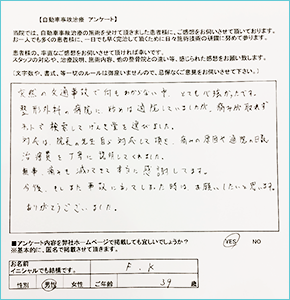 【自動車事故治療 アンケート】
当院では、自動車事故の施術を受けて頂きました患者様に、ご感想をお伺いさせて頂いております。
お一人でも多くの患者様に、一日でも早く完治して頂くために日々施術技術の研鑽に努めて参ります。
患者様の、率直なご感想をお伺いさせて頂ければ幸いです。
スタッフの対応や、治療説明、施術内容、他の整骨院との違い等、感じられた感想をお願い致します。
【文字数や、書式、等一切のルールは御座いませんので、忌憚なくご意見をお聞かせ下さいませ。】
突然の交通事故で何もわからない中、とても心強かったです。
整形外科の病院に始めは通院していましたが、痛みが取れず
ネットで検索してげんき堂を選びました。
対応は、院長の先生が対応して頂き、痛みの原因や通院の日数
治療費を丁寧に説明してくれました。
無事、痛みも減ってきて本当に感謝してます。
今後、もしまた事故にあってしまった時は、お願いしたいと思います。
ありがとうございました。
■アンケート内容を弊社ホームページで掲載しても宜しいでしょうか？
※基本的に、匿名で掲載させて頂きます。
YES NO
お名前
イニシャルでも結構です。
F.K
性別 男性 女性 ご年齢 39 歳